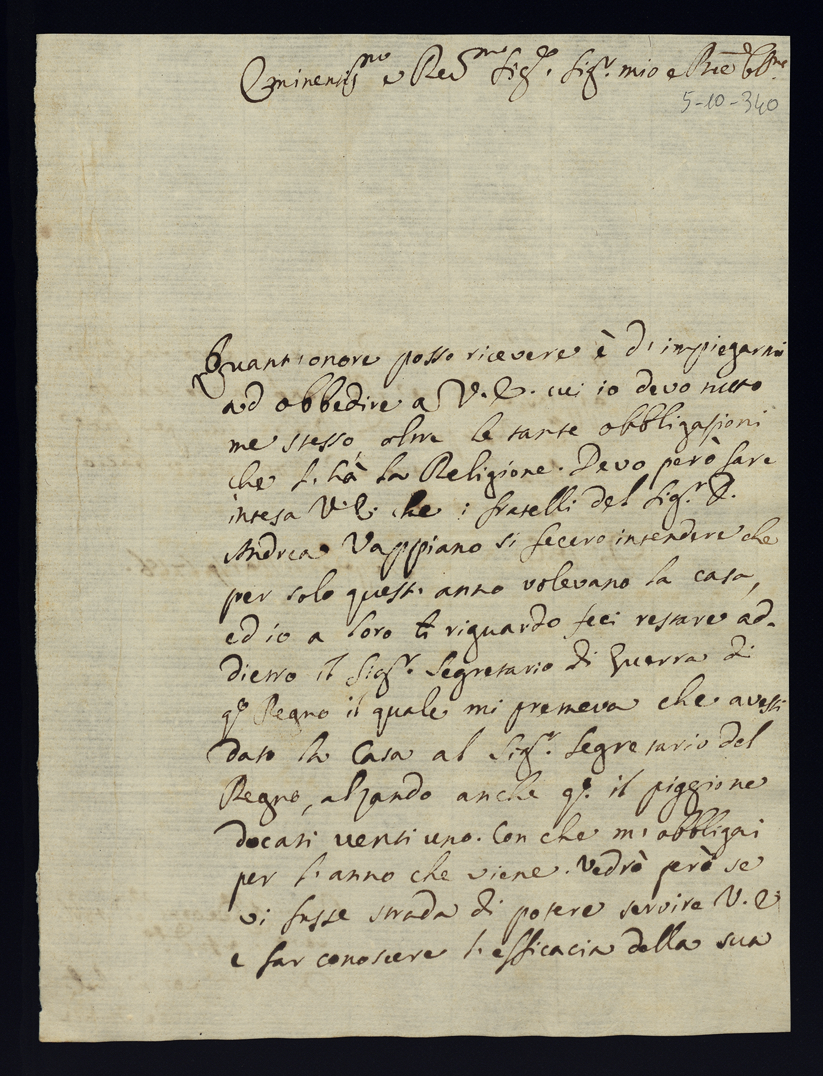 Eminentiss.mo e Re.mo Sig.r Sig.r mio e
5-10-340
Quant'onore posso ricevere è d'impiegarmi
ad obbedire a V.E. cui io devo tutto
me stesso, oltre le tante obbligazioni
che l'hà la Religione. Devo però fare
intesa V.E. che i fratelli del Sig.r D.
Andrea Vappiano si fecero intendere che
per solo quest'anno volevano la casa,
ed io a loro riguardo feci restare ad-
dietro il Sig.r Segretario di Guerra di
q.o Regno il quale mi premeva che avessi
dato la Casa al Sig.r Segretario del
Regno, alzando anche q.o il piggione
docati ventiuno. Con che m'obbligai
per l'anno che viene. Vedrò però se
vi fusse strada di potere servire V.E.
e far conoscere l'efficacia della sua